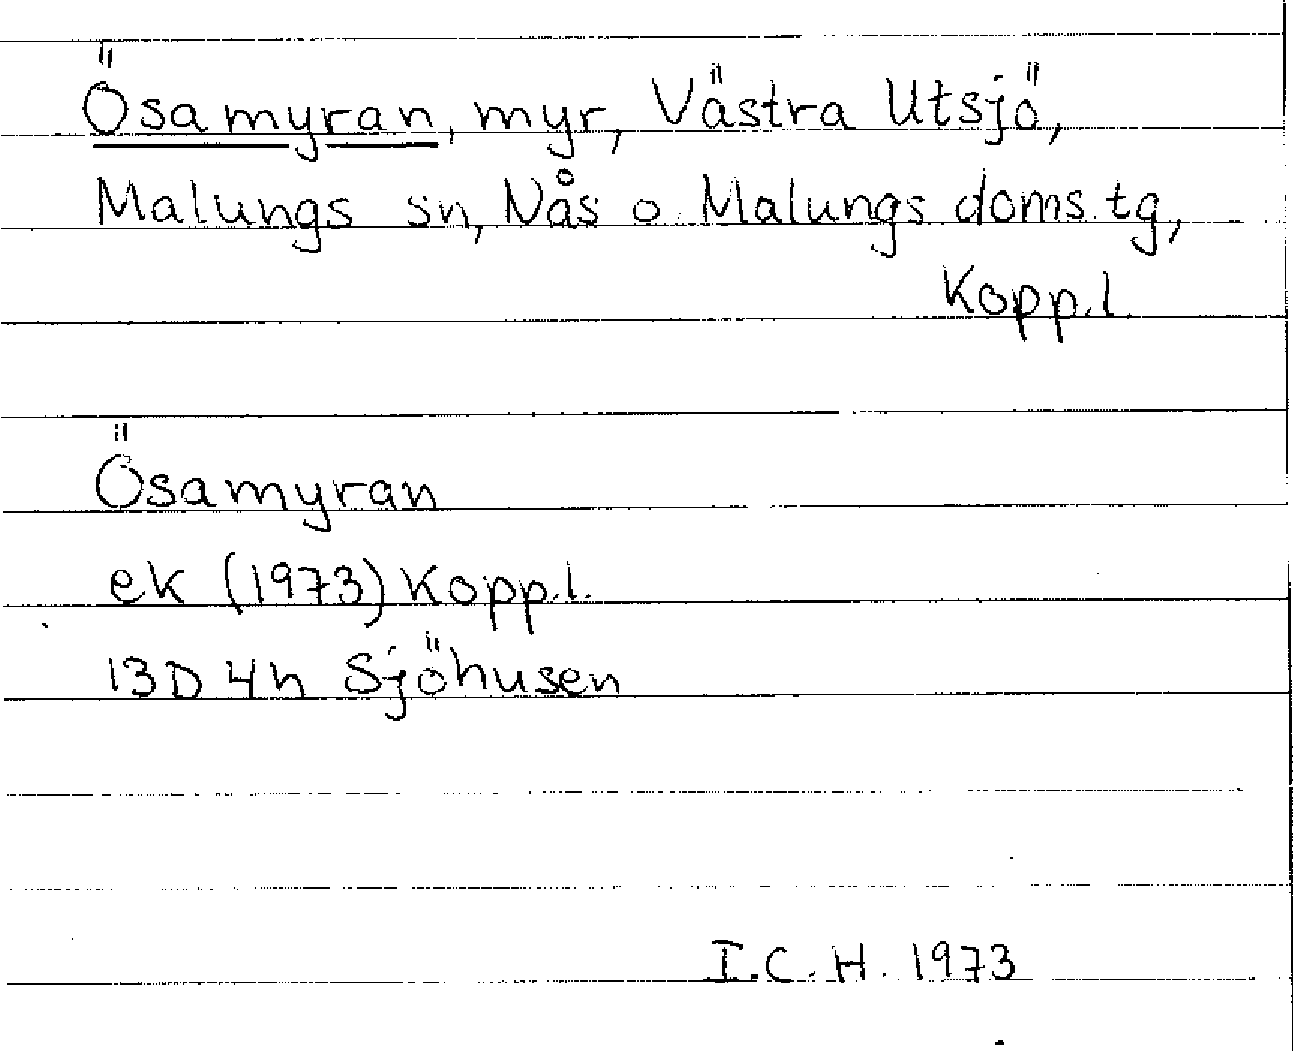 Ösamyran, myr, Västra Utsjö,
Malungs sn, Nås o. Malungs doms.tg,
Kopp.l.
Ösamyran
ek (1973) Kopp.l.
13D 4h Sjöhusen
I.C.H. 1973